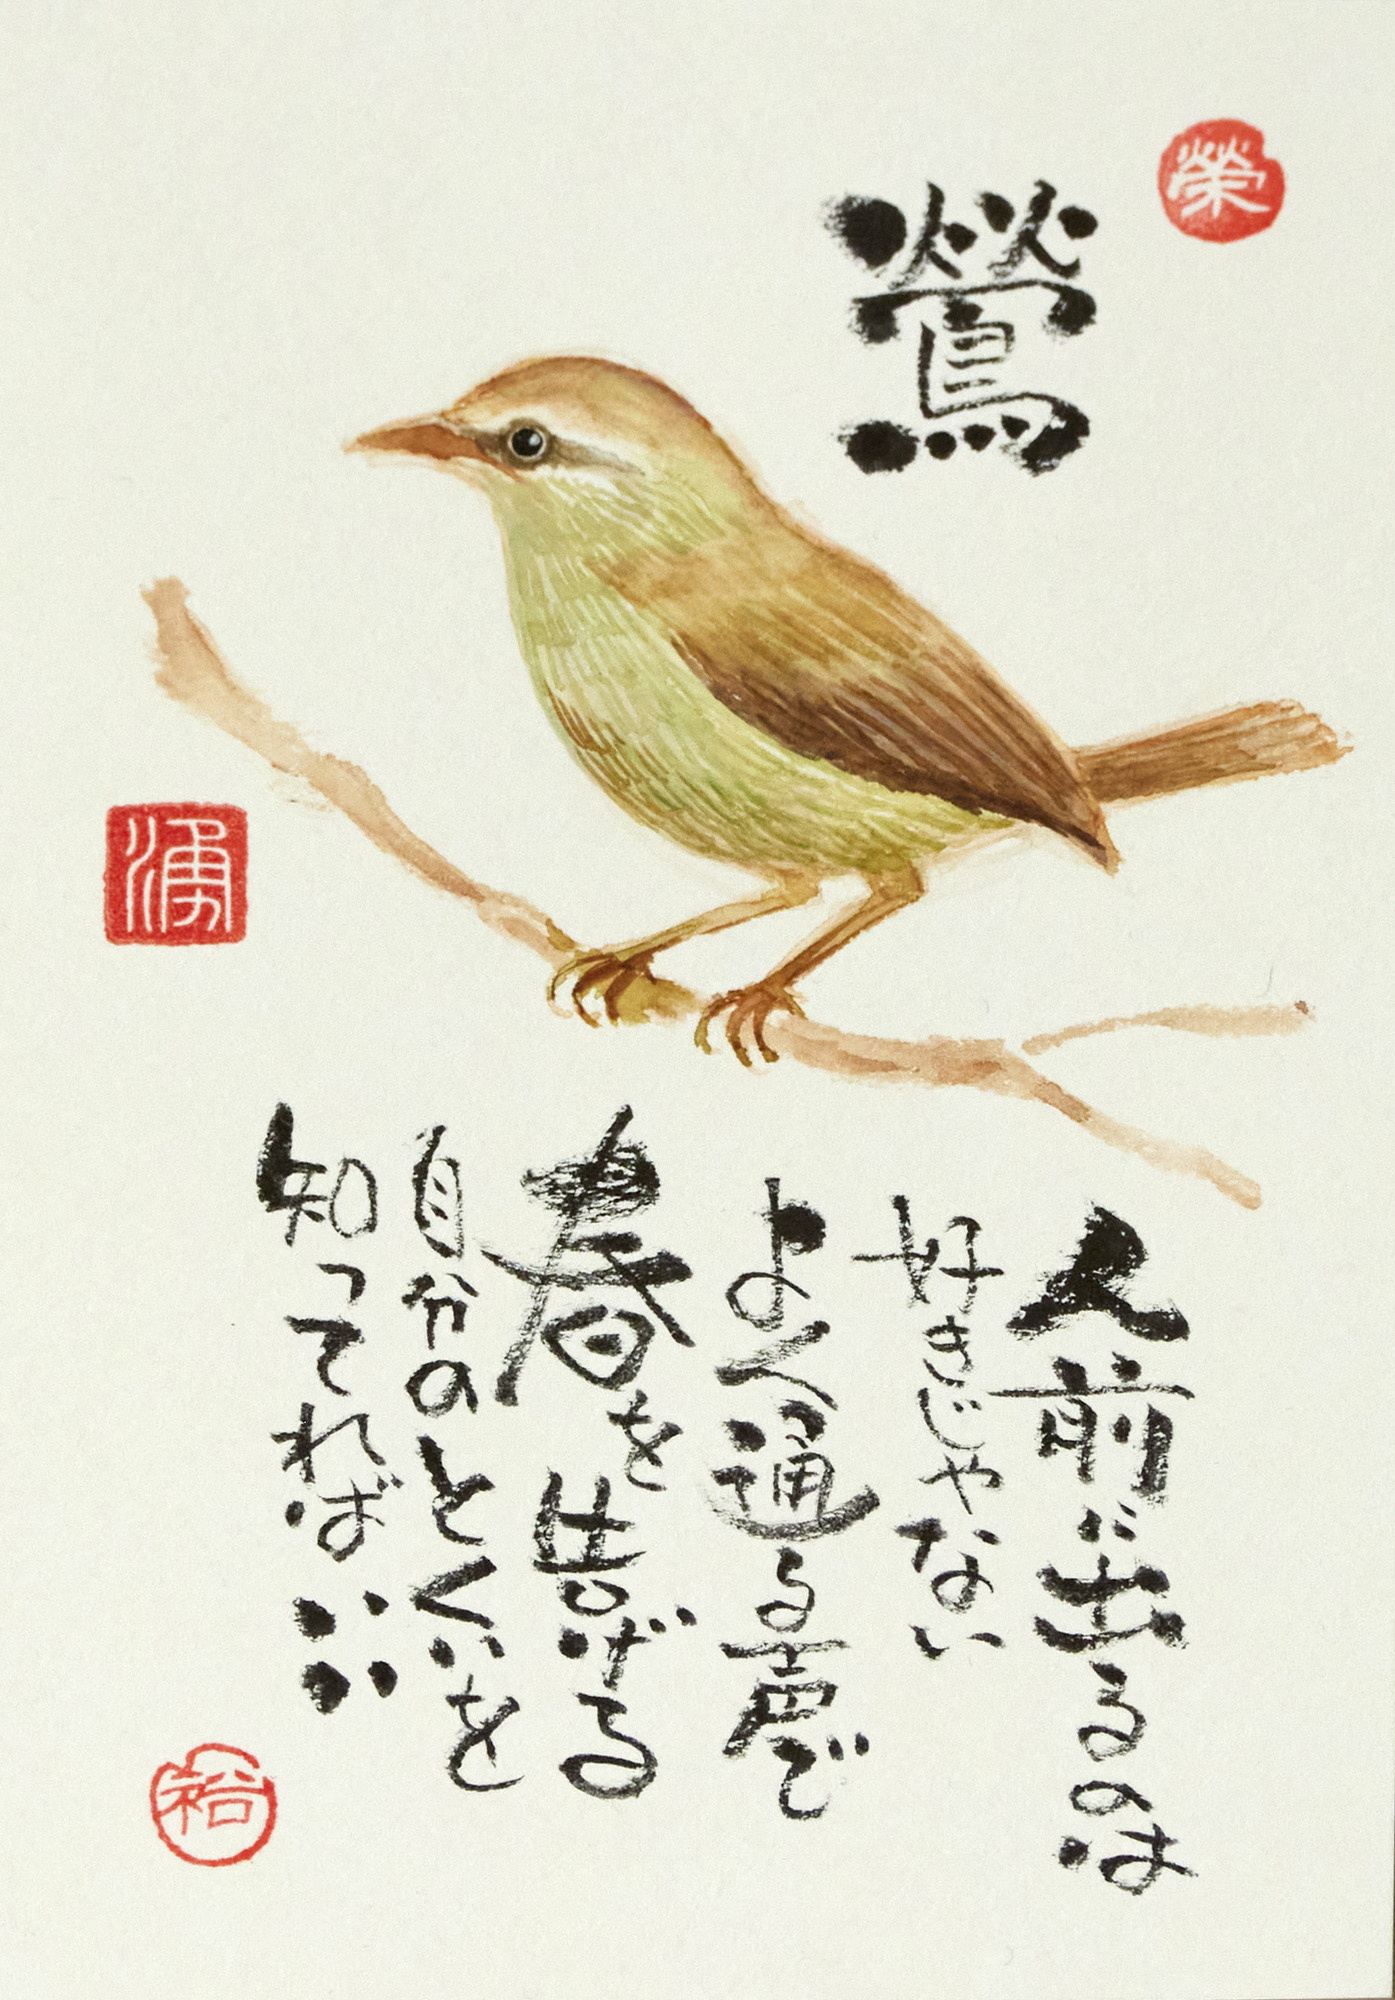 榮
鶯
人前に出るのは
好きじゃない
よく通る声で
春を告げる
自分のとくいを
知ってればいい
湧
裕